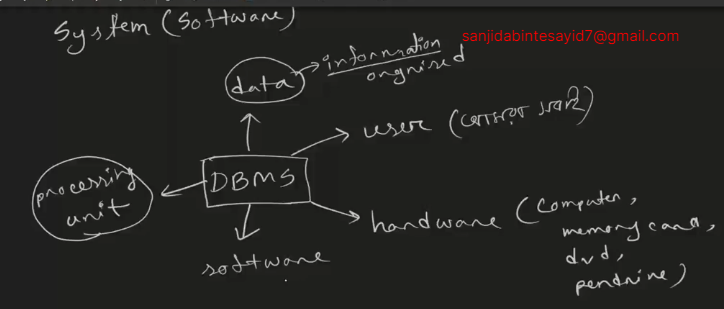 System (Software)
sanjidabintesayid7@gmail.com
data
information
orgnised
user
DBMS
processing
unit
hardware (Computer,
memory card,
dvd,
pendrive)
software